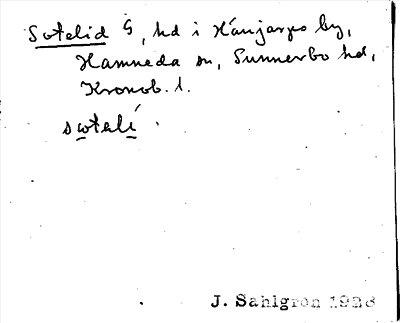 Sotelid G, hd i Hånjarps by,
Hamneda sn, Sunnerbo hd,
Kronob. l.
sωtelí.
J. Sahlgren 1928